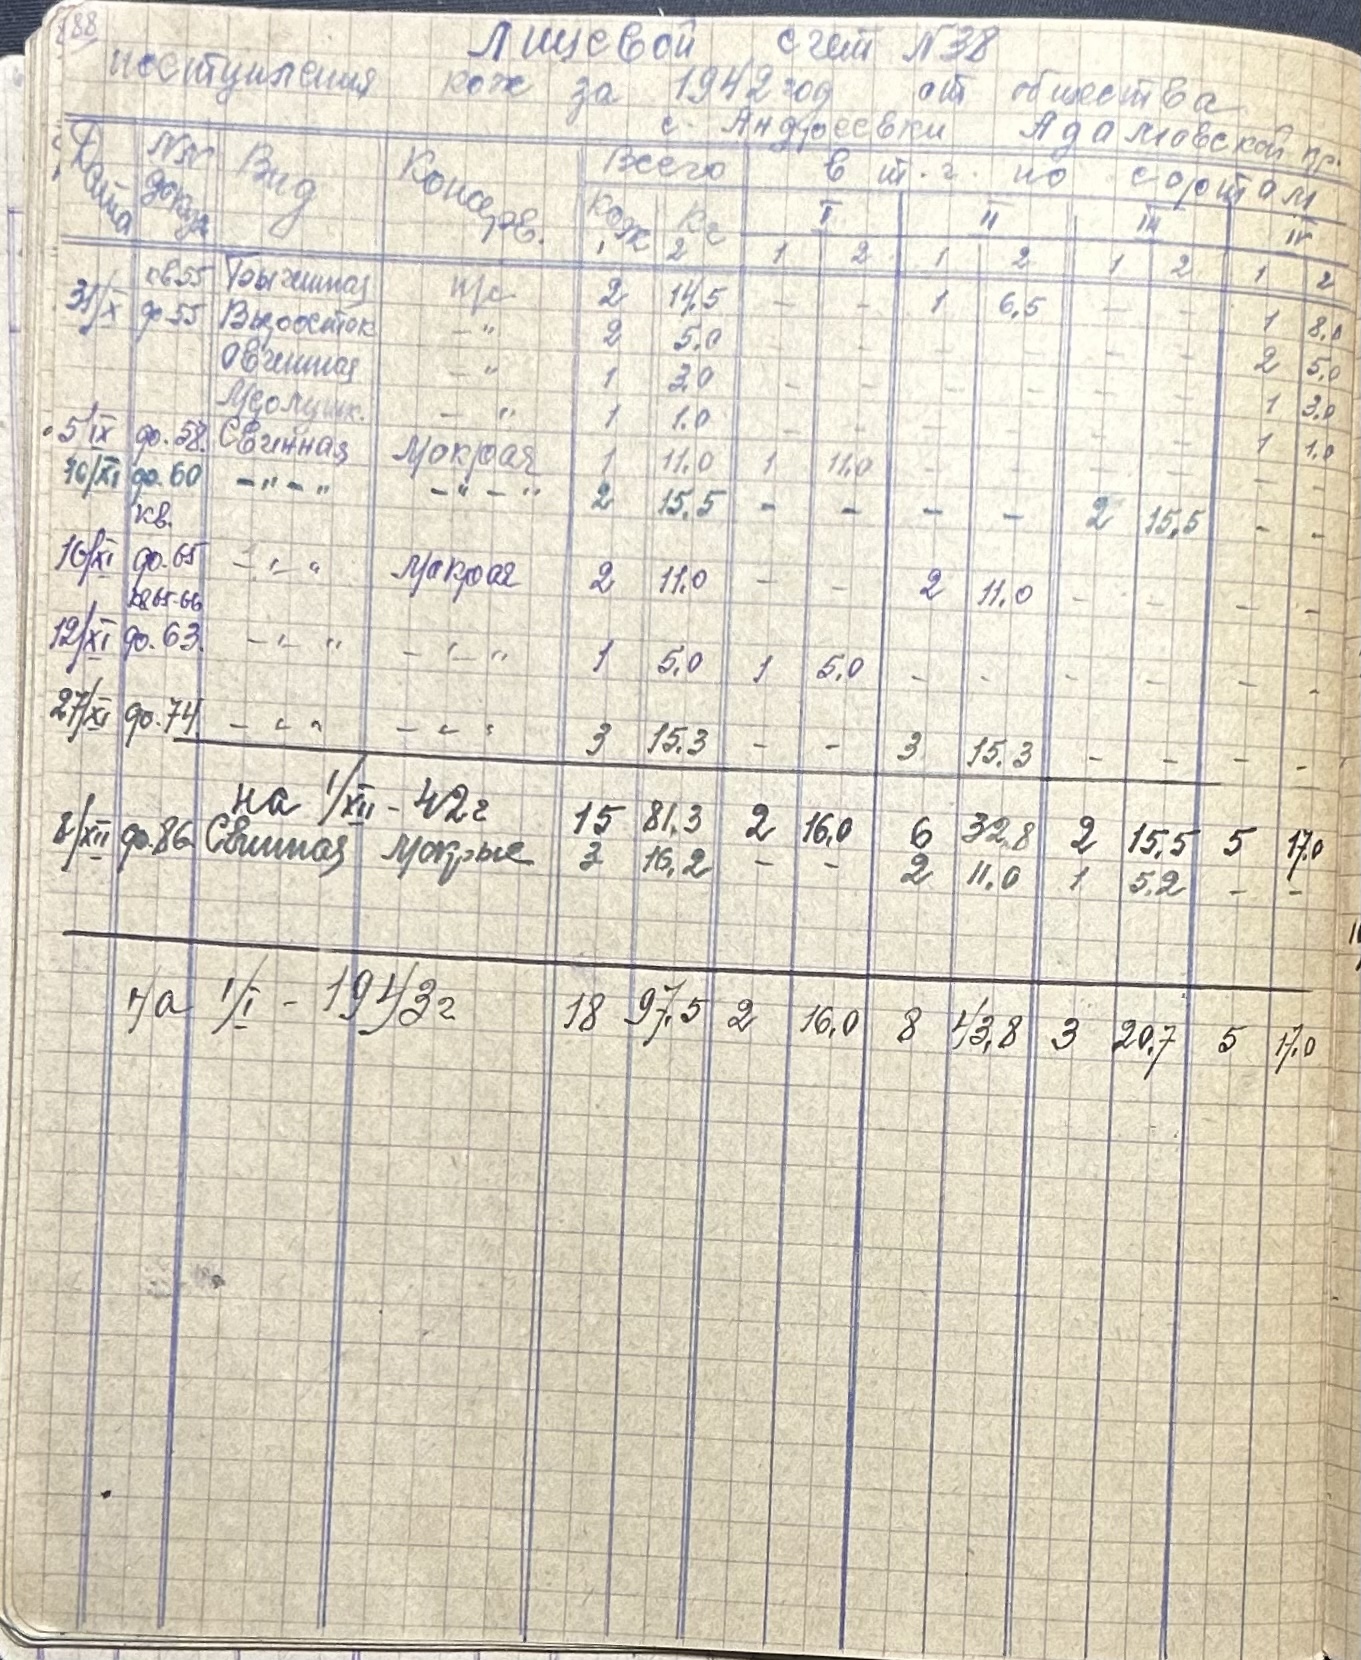 188
Лицевой счет N38
поступления кож за 1942 год от общества
с. Андреевки Адамовской пр.
Дата NN докум Вид Консерв. Всего в т.ч. по сортам
кож кг I II III IV
1 2 1 2 1 2 1 2 1 2
31/X кв 55 Бычинная п/с 2 14,5 - - 1 6,5 - - 1 8,0
ф 55 Выросток -"- 2 5.0 - - - - - - 2 5,0
Овчинная -"- 1 3.0 - - - - - - 1 3.0
-"- 1 1.0 - - - - - - 1 1.0
5/IX ф. 58. Свинная Мокрая 1 11.0 1 11.0 - - - - - -
10/XI ф. 60 -"-"- -"-"- 2 15.5 - - - - 2 15,5 - -
кв.
10/XI ф. 65 -"-"- Мокрая 2 11.0 - - 2 11.0 - - - -
кв 65-66
12/XI ф. 63. -"-"- -"-"- 1 5,0 1 5,0 - - - - - -
27/XI ф. 74 -"-"- -"-"- 3 15.3 - - 3 15.3 - - - -
на 1/XII - 42 г 15 81,3 2 16,0 6 32,8 2 15,5 5 17,0
8/XII ф. 86 Свинная Мокрые 3 16,2 - - 2 11,0 1 5.2 - -
на 1/I - 1943 г 18 97,5 2 16,0 8 43,8 3 20,7 5 17,0